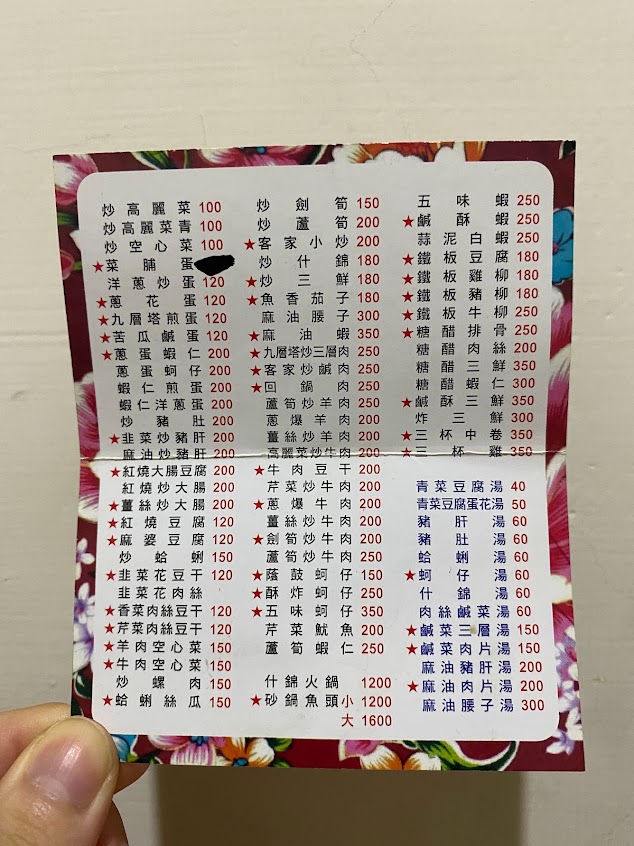 炒高麗菜 100
炒高麗菜青 100
炒空心菜 100
★菜脯蛋
洋蔥炒蛋 120
★蔥花蛋 120
★九層塔煎蛋 120
★苦瓜鹹蛋 120
★蔥蛋蝦仁 200
蔥蛋蚵仔 200
蝦仁煎蛋 200
蝦仁洋蔥蛋 200
炒豬肚 200
★韭菜炒豬肝 200
麻油炒豬肝 200
★紅燒大腸豆腐 200
紅燒炒大腸 200
★薑絲炒大腸 200
★紅燒豆腐 120
★麻婆豆腐 120
炒蛤蜊 150
★韭菜花豆干 120
韭菜花肉絲
★香菜肉絲豆干 120
★芹菜肉絲豆干 120
★羊肉空心菜 150
★牛肉空心菜 150
炒螺肉 150
★蛤蜊絲瓜 150
炒劍筍 150
炒蘆筍 200
★客家小炒 200
炒什錦 180
★炒三鮮 180
★魚香茄子 180
麻油腰子 300
★麻油蝦 350
★九層塔炒三層肉 250
★客家炒鹹肉 250
★回鍋肉 250
蘆筍炒羊肉 250
蔥爆羊肉 200
薑絲炒羊肉 200
高麗菜炒牛肉 200
★牛肉豆干 200
芹菜炒牛肉 200
★蔥爆牛肉 200
薑絲炒牛肉 200
★劍筍炒牛肉 200
蘆筍炒牛肉 250
★蔭鼓蚵仔 150
★酥炸蚵仔 250
★五味蚵仔 350
芹菜魷魚 200
蘆筍蝦仁 250
什錦火鍋 1200
★砂鍋魚頭 小 1200
大 1600
五味蝦 250
★鹹酥蝦 250
蒜泥白蝦 250
★鐵板豆腐 180
★鐵板雞柳 180
★鐵板豬柳 180
★鐵板牛柳 250
★糖醋排骨 250
糖醋肉絲 200
糖醋三鮮 350
糖醋蝦仁 300
★鹹酥三鮮 350
炸三鮮 300
★三杯中卷 350
★三杯雞 350
青菜豆腐湯 40
青菜豆腐蛋花湯 50
豬肝湯 60
豬肚湯 60
蛤蜊湯 60
★蚵仔湯 60
什錦湯 60
肉絲鹹菜湯 60
★鹹菜三層湯 150
★鹹菜肉片湯 150
麻油豬肝湯 200
★麻油肉片湯 200
麻油腰子湯 300